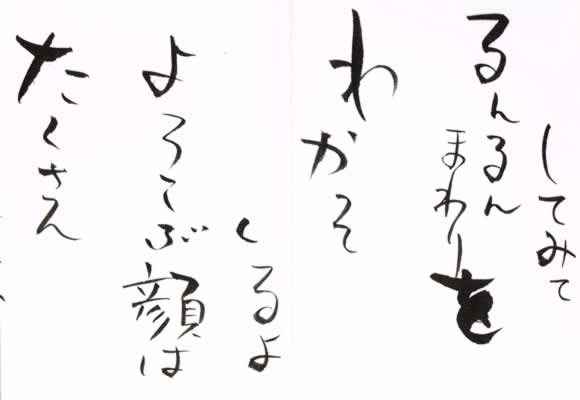 してみて
るんるん
まわりを
わかそ
くるよ
よろこぶ顔は
たくさん